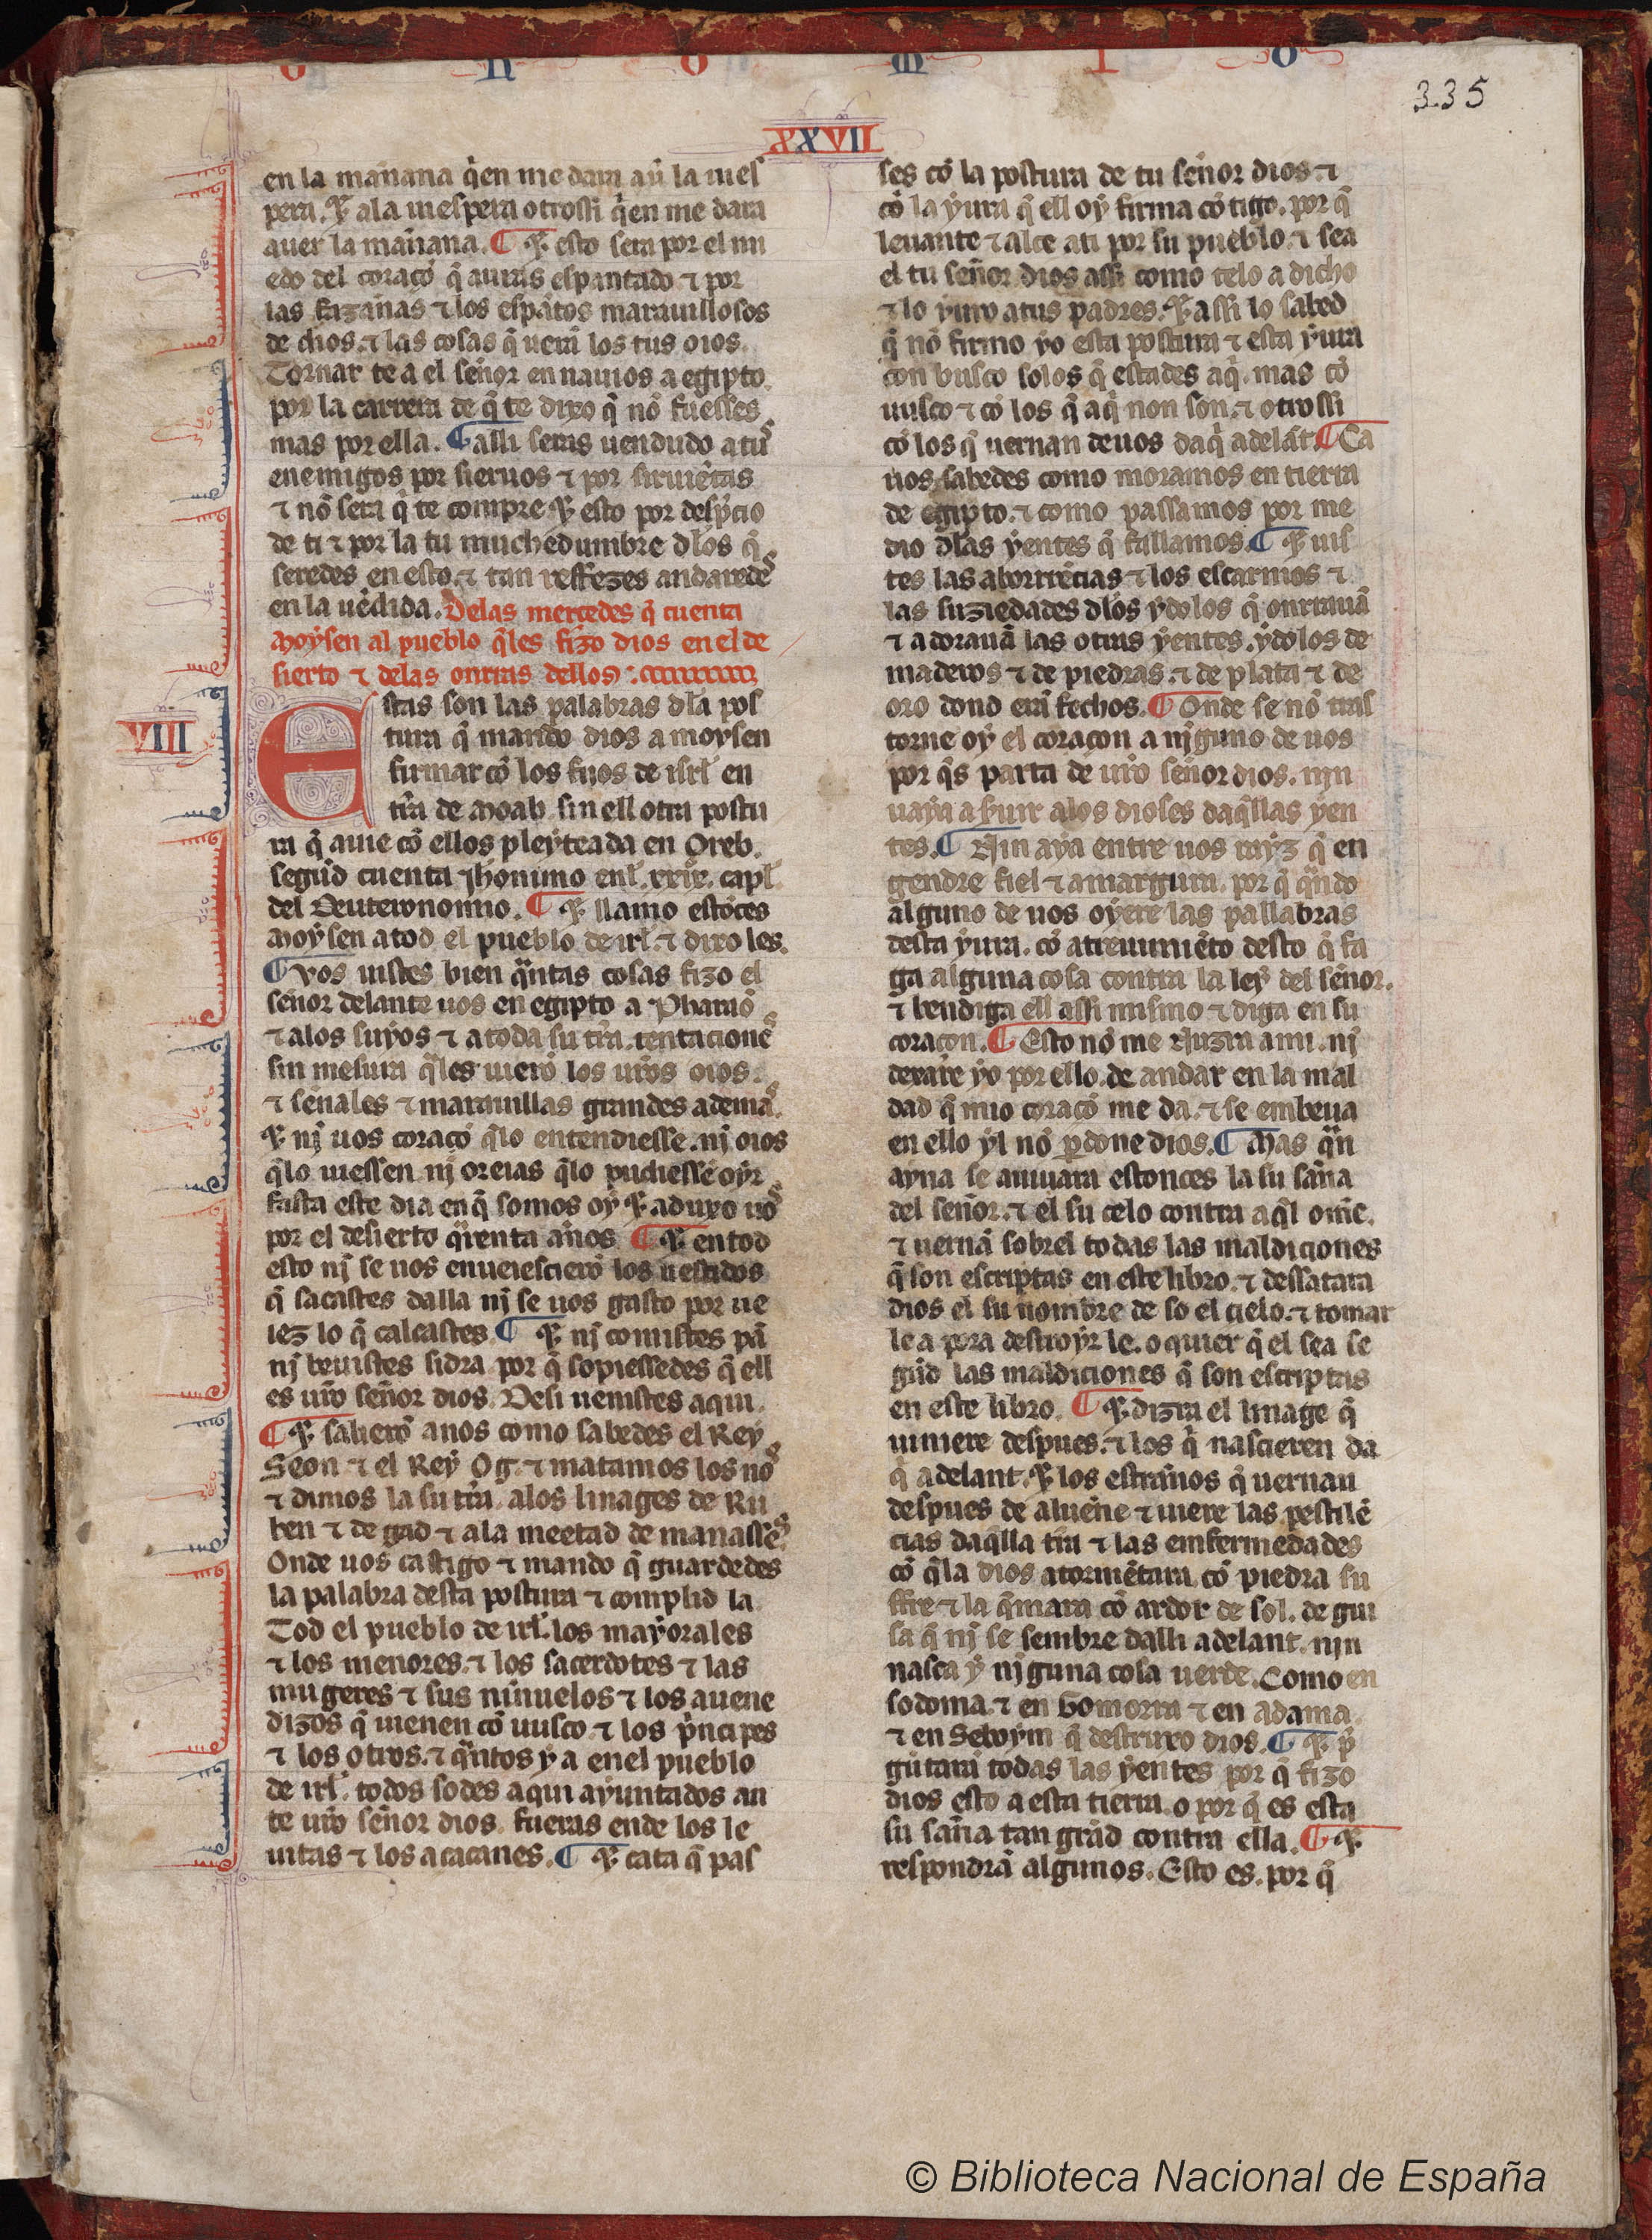 o n o m i o
335
XXVII
en la mañana q̃en me dara auẽ la ues
pera. ⁊ ala uespera otrossi q̃en me dara
auer la mañana. ¶ ⁊ esto sera por el mi
edo del coraçõ q̃ auras espantado ⁊ por
las fazañas ⁊ los espãtos marauillosos
de dios. ⁊ las cosas q̃ uerã los tus oios.
Tornar te a el señor en nauios a egipto.
por la carrera de q̃ te dixo q̃ nõ fuesses
mas por ella. ¶ alli seras uendudo a tus
enemigos por sieruos ⁊ por siruiẽtas
⁊ nõ sera q̃ te compre ⁊ esto por despcio
de ti ⁊ por la tu muchedumbre dlos q̃
seredes en esto. ⁊ tan reffezes andaredes
en la uẽdida. Delas mercedes q̃ cuenta
Moysen al pueblo q̃les fizo dios en el de
sierto ⁊ delas onrras dellos :
VIII
Estas son las palabras dla pos
tura q̃ mando dios a moysen
firmar cõ los fijos de isrl en
trã de Moab sin ell otra postu
ra q̃ aue cõ ellos pleyteada en Oreb.
segũd cuenta Jheronimo enl xxix. capl.
del Deuteronomio. ¶ ⁊ llamo estõces
Moysen a tod el pueblo de irl. ⁊ dixo les.
¶ Vos uistes bien q̃ntas cosas fizo el
señor delante uos en egipto a Pharaõ
⁊ alos suyos ⁊ a toda su trã. tentaciones
sin mesura q̃les uierõ los uros oios.
⁊ señales ⁊ marauillas grandes ademas.
⁊ nj uos coraçõ q̃lo entendiesse. nj oios
q̃lo uiessen nj oreias q̃lo pudiessẽ oyr
fasta este dia en q̃ somos oy ⁊ aduxo uos
por el desierto q̃renta años. ¶ ⁊ en tod
esto nj se uos enueiescierõ los uestidos
q̃ sacastes dalla nj se uos gasto por ue
iez lo q̃ calçastes. ¶ ⁊ nj comistes pã
nj beuistes sidra por q̃ sopiessedes q̃ ell
es uro señor dios. Desi uenistes aqui.
¶ ⁊ salierõ a nos como sabedes el Rey
Seon ⁊ el Rey Og. ⁊ matamos los nos
⁊ dimos la su trã. alos linages de Ru
ben ⁊ de gad ⁊ ala meetad de manasses.
Onde uos castigo ⁊ mando q̃ guardedes
la palabra desta postura ⁊ complid la.
Tod el pueblo de irl. los mayorales
⁊ los menores. ⁊ los sacerdotes ⁊ las
mugeres ⁊ sus niñuelos ⁊ los auene
dizos q̃ uienen cõ uusco ⁊ los p̃ncipes
⁊ los otros. ⁊ q̃ntos y a en el pueblo
de irl. todos sodes aqui ayuntados an
te uro señor dios. fueras ende los le
uitas ⁊ los acacanes. ¶ ⁊ cata q̃ pas
ses cõ la postura de tu señor dios. ⁊
cõ la yura q̃ ell oy firma cõtigo. por q̃
leuante ⁊ alce a ti por su pueblo. ⁊ sea
el tu señor dios assi como telo a dicho
⁊ lo yuro a tus padres. ⁊ assi lo sabed
q̃ nõ firmo yo esta postura ⁊ esta yura
con uusco solos q̃ estades aq̃. mas cõ
uusco ⁊ cõ los q̃ aq̃ non son. ⁊ otrossi
cõ los q̃ uernan de uos daq̃ adelãt. ¶ Ca
uos sabedes como moramos en tierra
de egipto. ⁊ como passamos por me
dio dlas yentes q̃ fallamos. ¶ ⁊ uis
tes las aborrẽcias ⁊ los escarnios ⁊
las suziedades dlos ydolos q̃ onrrauã
⁊ adorauã las otras yentes. ydolos de
maderos ⁊ de piedras. ⁊ de plata ⁊ de
oro dond erã fechos. ¶ Onde se nõ tras
torne oy el coraçon a nj guno de uos
por q̃s parta de uro señor dios. nin
uaya a siruir alos dioses daq̃llas yen
tes. ¶ Nin aya entre uos rayz q̃ en
gendre fiel ⁊ amargura. por q̃ q̃ndo
alguno de uos oyere las pallabras
desta yura. cõ atreuimiẽto desto q̃ fa
ga alguna cosa contra la ley del señor.
⁊ bendiga ell assi mismo ⁊ diga en su
coraçon. ¶ Esto nõ me nuzra a mi. nj
dexare yo por ello. de andar en la mal
dad q̃ mio coraçõ me da. ⁊ se embeua
en ello yl nõ p̱done dios. ¶ Mas q̃n
ayna se auiuara estonces la su saña
del señor. ⁊ el su celo contra aq̃l omẽ.
⁊ uernã sobrel todas las maldiciones
q̃ son escriptas en este libro. ⁊ dessatara
dios el su nombre de so el cielo. ⁊ tomar
le a pora destroyr le. o quier q̃ el sea se
gũd las maldiciones q̃ son escriptas
en este libro. ¶ ⁊ dizra el linage q̃
uiniere despues. ⁊ los q̃ nascieren da
q̃ adelant. ⁊ los estraños q̃ uernan
despues de alueñe ⁊ uiere las pestilẽ
cias daq̃lla trã ⁊ las enfermedades
cõ q̃la dios atormẽtara. cõ piedra su
ffre ⁊ la q̃mara cõ ardor de sol. de gui
sa q̃ nj se sembre dalli adelant. nin
nasca y nj guna cosa uerde. Como en
sodoma. ⁊ en Gomorra ⁊ en adama.
⁊ en Seboym q̃ destruxo dios. ¶ ⁊ p̃
gũtarã todas las yentes por q̃ fizo
dios esto a esta tierra. o por q̃ es esta
su saña tan grãd contra ella. ¶ ⁊
respondrã algunos. Esto es. por q̃
© Biblioteca Nacional de España